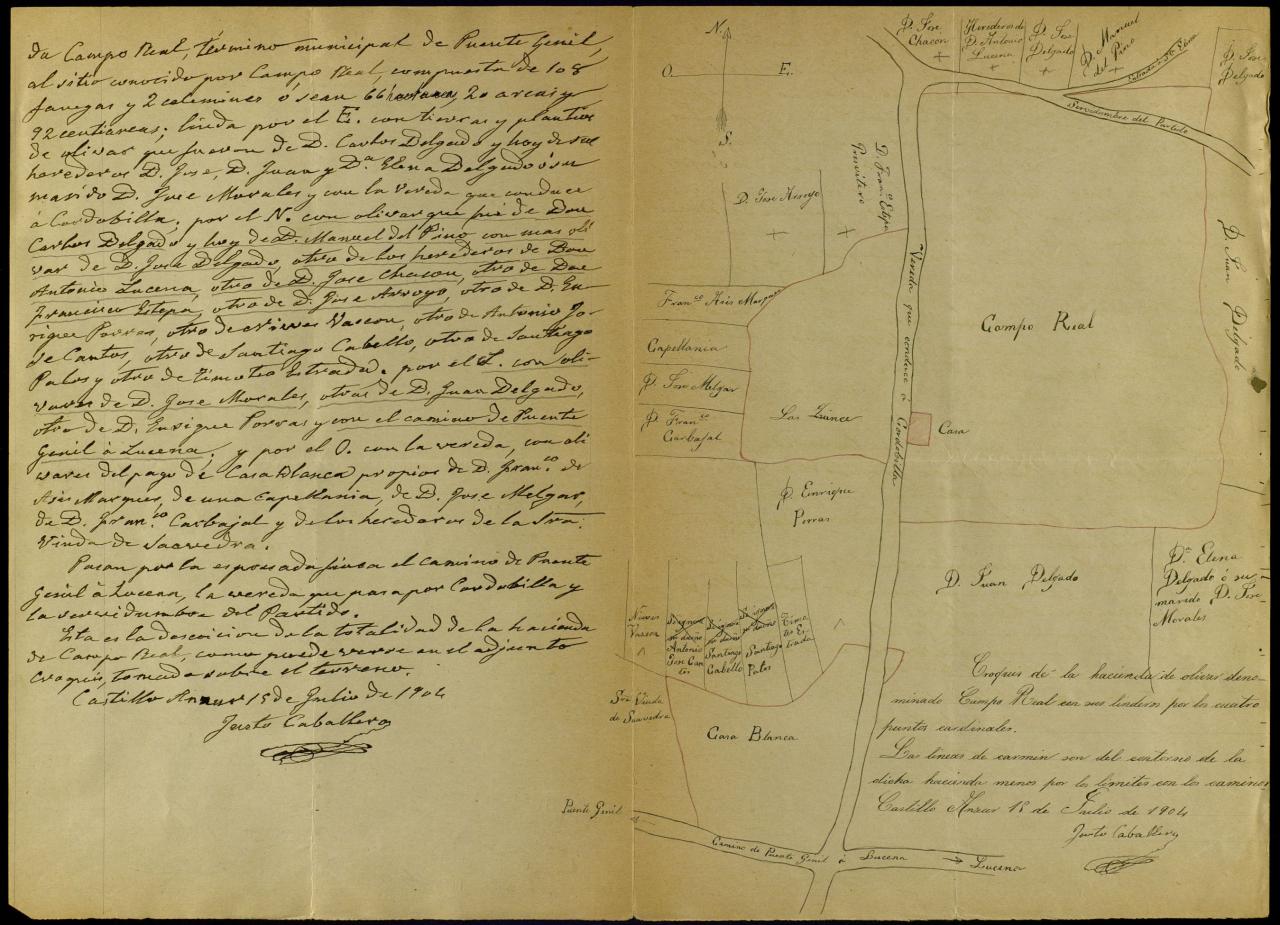 da Campo Real, término municipal de Puente Genil,
al sitio conocido por Campo Real, compuesta de 108
fanegas y 2 celemines ó sean 66 hectareas, 20 areas y
92 centiareas; linda por el E. con tierras y plantios
de olivar que fueron de D. Carlos Delgado y hoy de sus
herederos D. Jose, D. Juan y D.ª Elena Delgado ó su
marido D. Jose Morales y con la vereda que conduce
á Cordobilla; por el N. con olivar que fué de Don
Carlos Delgado y hoy de D. Manuel del Pino con mas oli
var de D. Jose Delgado, otro de los herederos de Don
Antonio Lucena, otro de D. Jose Chacon, otro de Don
Francisco Estepa, otro de D. Jose Arroyo, otro de D. En
rique Porras, otro de Nieves Vascon, otro de Antonio Jo-
se Cantos, otro de Santiago Cabello, otro de Santiago
Palos y otro de Timoteo Estrada; por el S. con oli-
vares de D. Jose Morales, otros de D. Juan Delgado,
otro de D. Enrique Porras y con el camino de Puente
Genil á Lucena; y por el O. con la vereda, con oli
vares del pago de Casa Blanca propios de D. Fran.co de
Asis Marques, de una Capellania, de D. Jose Melgar,
de D. Fran.co Carbajal y de los herederos de la Sra.
Viuda de Saavedra.
Pasan por la espresada finca el camino de Puente
Genil á Lucena, la vereda que pasa por Cordobilla y
la servidumbre del Partido.
Esta es la descricion de la totalidad de la hacienda
de Campo Real, como puede verse en el adjunto
croquis, tomado sobre el terreno.
Castillo Anzur 15 de Julio de 1904
Justo Caballero
N.
O.
E.
S.
D. Jose
Chacon
Herederos de
D. Antonio
Lucena
D. Jose
Delgado
D. Manuel
del Pino
D. Jose
Delgado
Servidumbre del Partido
D. Fran.co Estepa
D. Jose Arroyo
Vereda que conduce á Cordobilla
Campo Real
D. Juan Delgado
Fran.co Asis Marques
Capellania
D. Jose Melgar
D. Fran.co
Carbajal
Casa
D. Enrique
Porras
D. Juan Delgado
D.ª Elena
Delgado ó su
marido D. Jose
Morales
Nieves
Vascon
Antonio
Jose Can
tos
Santiago
Cabello
Santiago
Palos
Timo
teo Es
trada
Sra Viuda
de Saavedra
Casa Blanca
Puente Genil
Camino de Puente Genil á Lucena
Lucena
Croquis de la hacienda de olivar deno-
minado Campo Real con sus linderos por los cuatro
puntos cardinales.
Las líneas de carmin son del contorno de la
dicha hacienda menos por los limites con los caminos
Castillo Anzur 15 de Julio de 1904
Justo Caballero